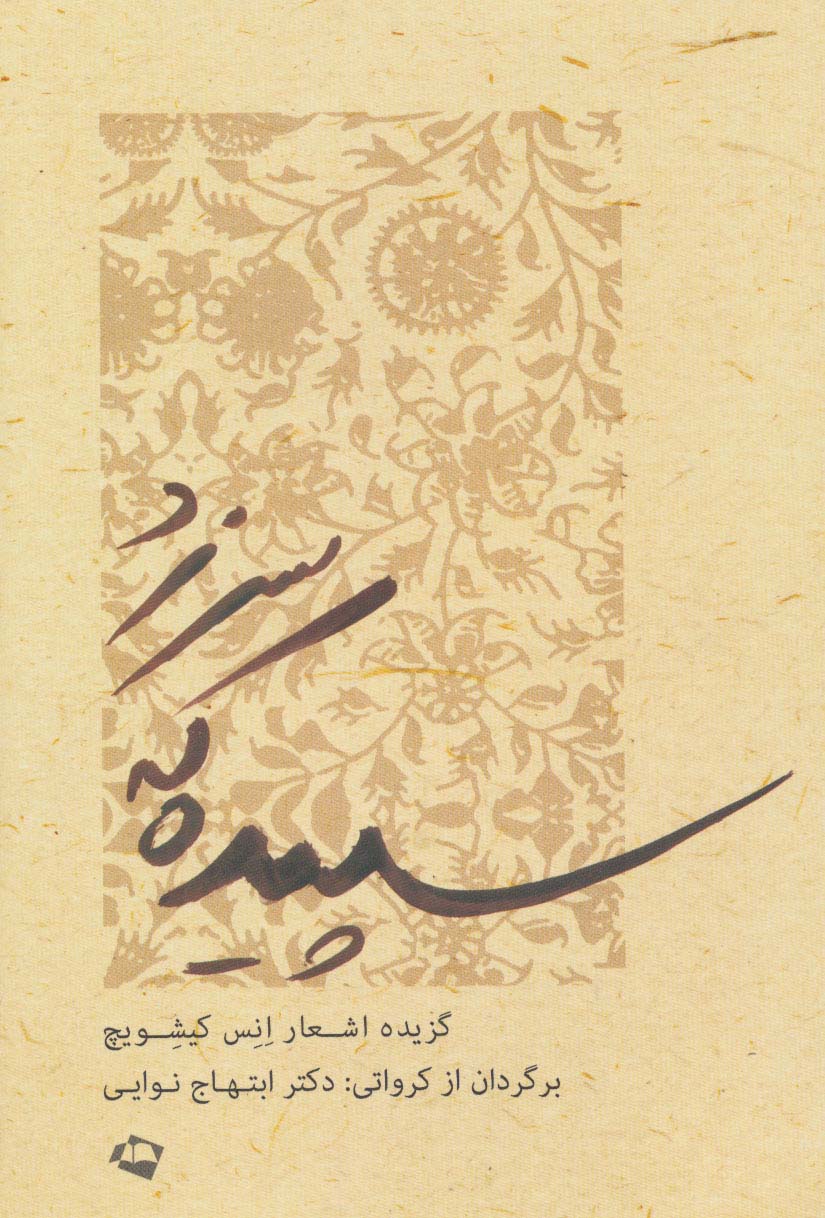 سپیده که
سر زد
گزیده اشعار اِنِس کیشِویچ
برگردان از کرواتی: دکتر ابتهاج نوایی